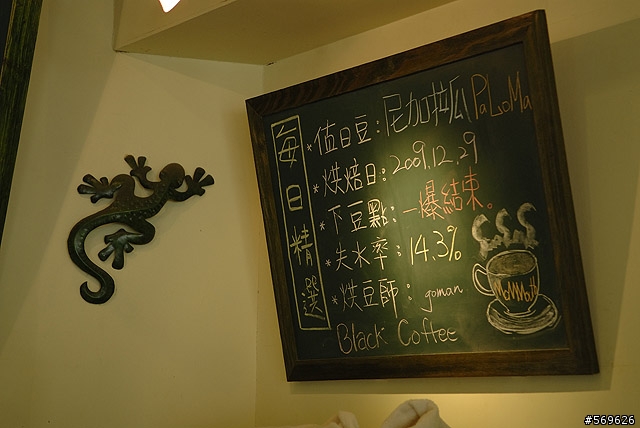 每日精選
*值日豆:尼加拉瓜PaLoMa
*烘焙日:2009.12.29
*下豆點:一爆結束。
*失水率:14.3%
*烘豆師:goman
Black Coffee
MoMMoTH
#569626